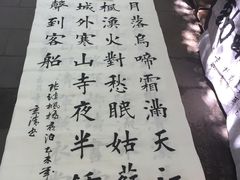 月落烏啼霜滿天江
楓漁火對愁眠姑蘇
城外寒山寺夜半鐘
聲到客船
張継楓橋夜泊